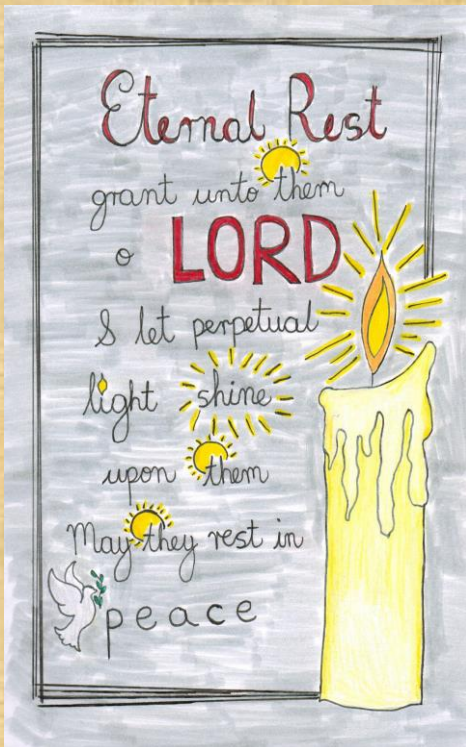 Eternal Rest
grant unto them
o LORD
& let perpetual
light shine
upon them
May they rest in
peace